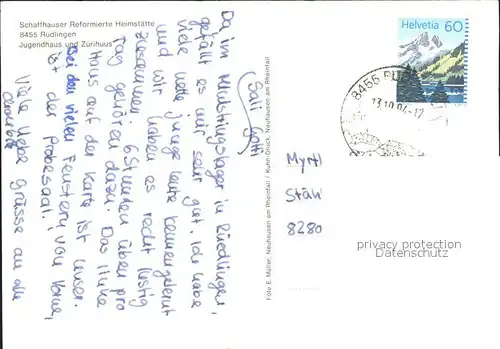 Schaffhauser Reformierte Heimstätte
8455 Rüdlingen
Jugendhaus und Zürihuus
Helvetia 60
8455 RÜD
13.10.94-12
Sali Gotti
Da, im Musigslager in Rüedlingen,
gefällt es mir sehr gut. Ich habe
viele nette junge leute kennengelernt
und wir haben es recht lustig
zusammen. 6 Stunden üben pro
Tag gehören dazu. Das linke
Haus auf der Karte ist unser.
Bei den vielen Fenstern, von vorne,
ist der Probesaal.
Viele liebe Grüsse an alle
Foto E. Müller, Neuhausen am Rheinfall / Kuhn-Druck, Neuhausen am Rheinfall
Myrtl
Stäh
8280
privacy protection
Datenschutz